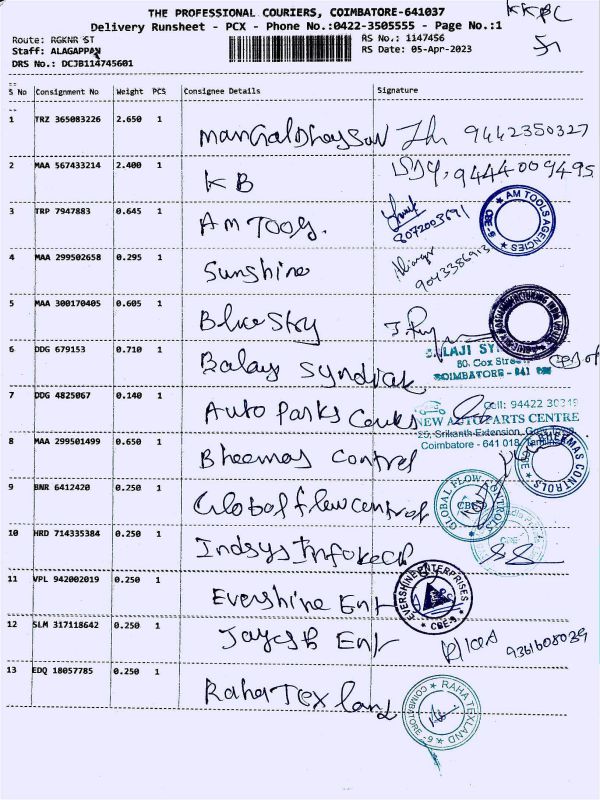 THE PROFESSIONAL COURIERS, COIMBATORE-641037
KKBC
Delivery Runsheet - PCX - Phone No.:0422-3505555 - Page No.:1
Route: RGKNR ST
RS No.: 1147456
Staff: ALAGAPPAN
RS Date: 05-Apr-2023
DRS No.: DCJB114745601
S No Consignment No Weight PCS Consignee Details Signature
1 TRZ 365083226 2.650 1
9442350327
2 MAA 567433214 2.400 1 KB 9444009495
3 TRP 7947883 0.645 1 AM TOOLS.
8072003691
AM TOOLS AGENCIES CBE-6
4 MAA 299502658 0.295 1 Sunshine
9043386913
5 MAA 300170405 0.605 1 Blue Sky
6 DDG 679153 0.710 1 Balaji Syndicate
BALAJI SY
80, Cox Street
COIMBATORE - 641
7 DDG 4825067 0.140 1 Auto Parts
Cell: 94422 30319
NEW AUTOPARTS CENTRE
25, Srikanth Extension,
Coimbatore - 641 018,
8 MAA 299501499 0.650 1 Bheemas Control
BHEEMAS CONTROLS
9 BNR 6412420 0.250 1 Global flow control
GLOBAL FLOW CONTROLS
10 HRD 714335384 0.250 1 Indsys Infotech
11 VPL 942002019 0.250 1 Evershine Ent
EVERSHINE ENTERPRISES CBE-9
12 SLM 317118642 0.250 1 Ent
9361608039
13 EDQ 18057785 0.250 1 Raha Tex land
RAHA TEXLAND COIMBATORE - 6